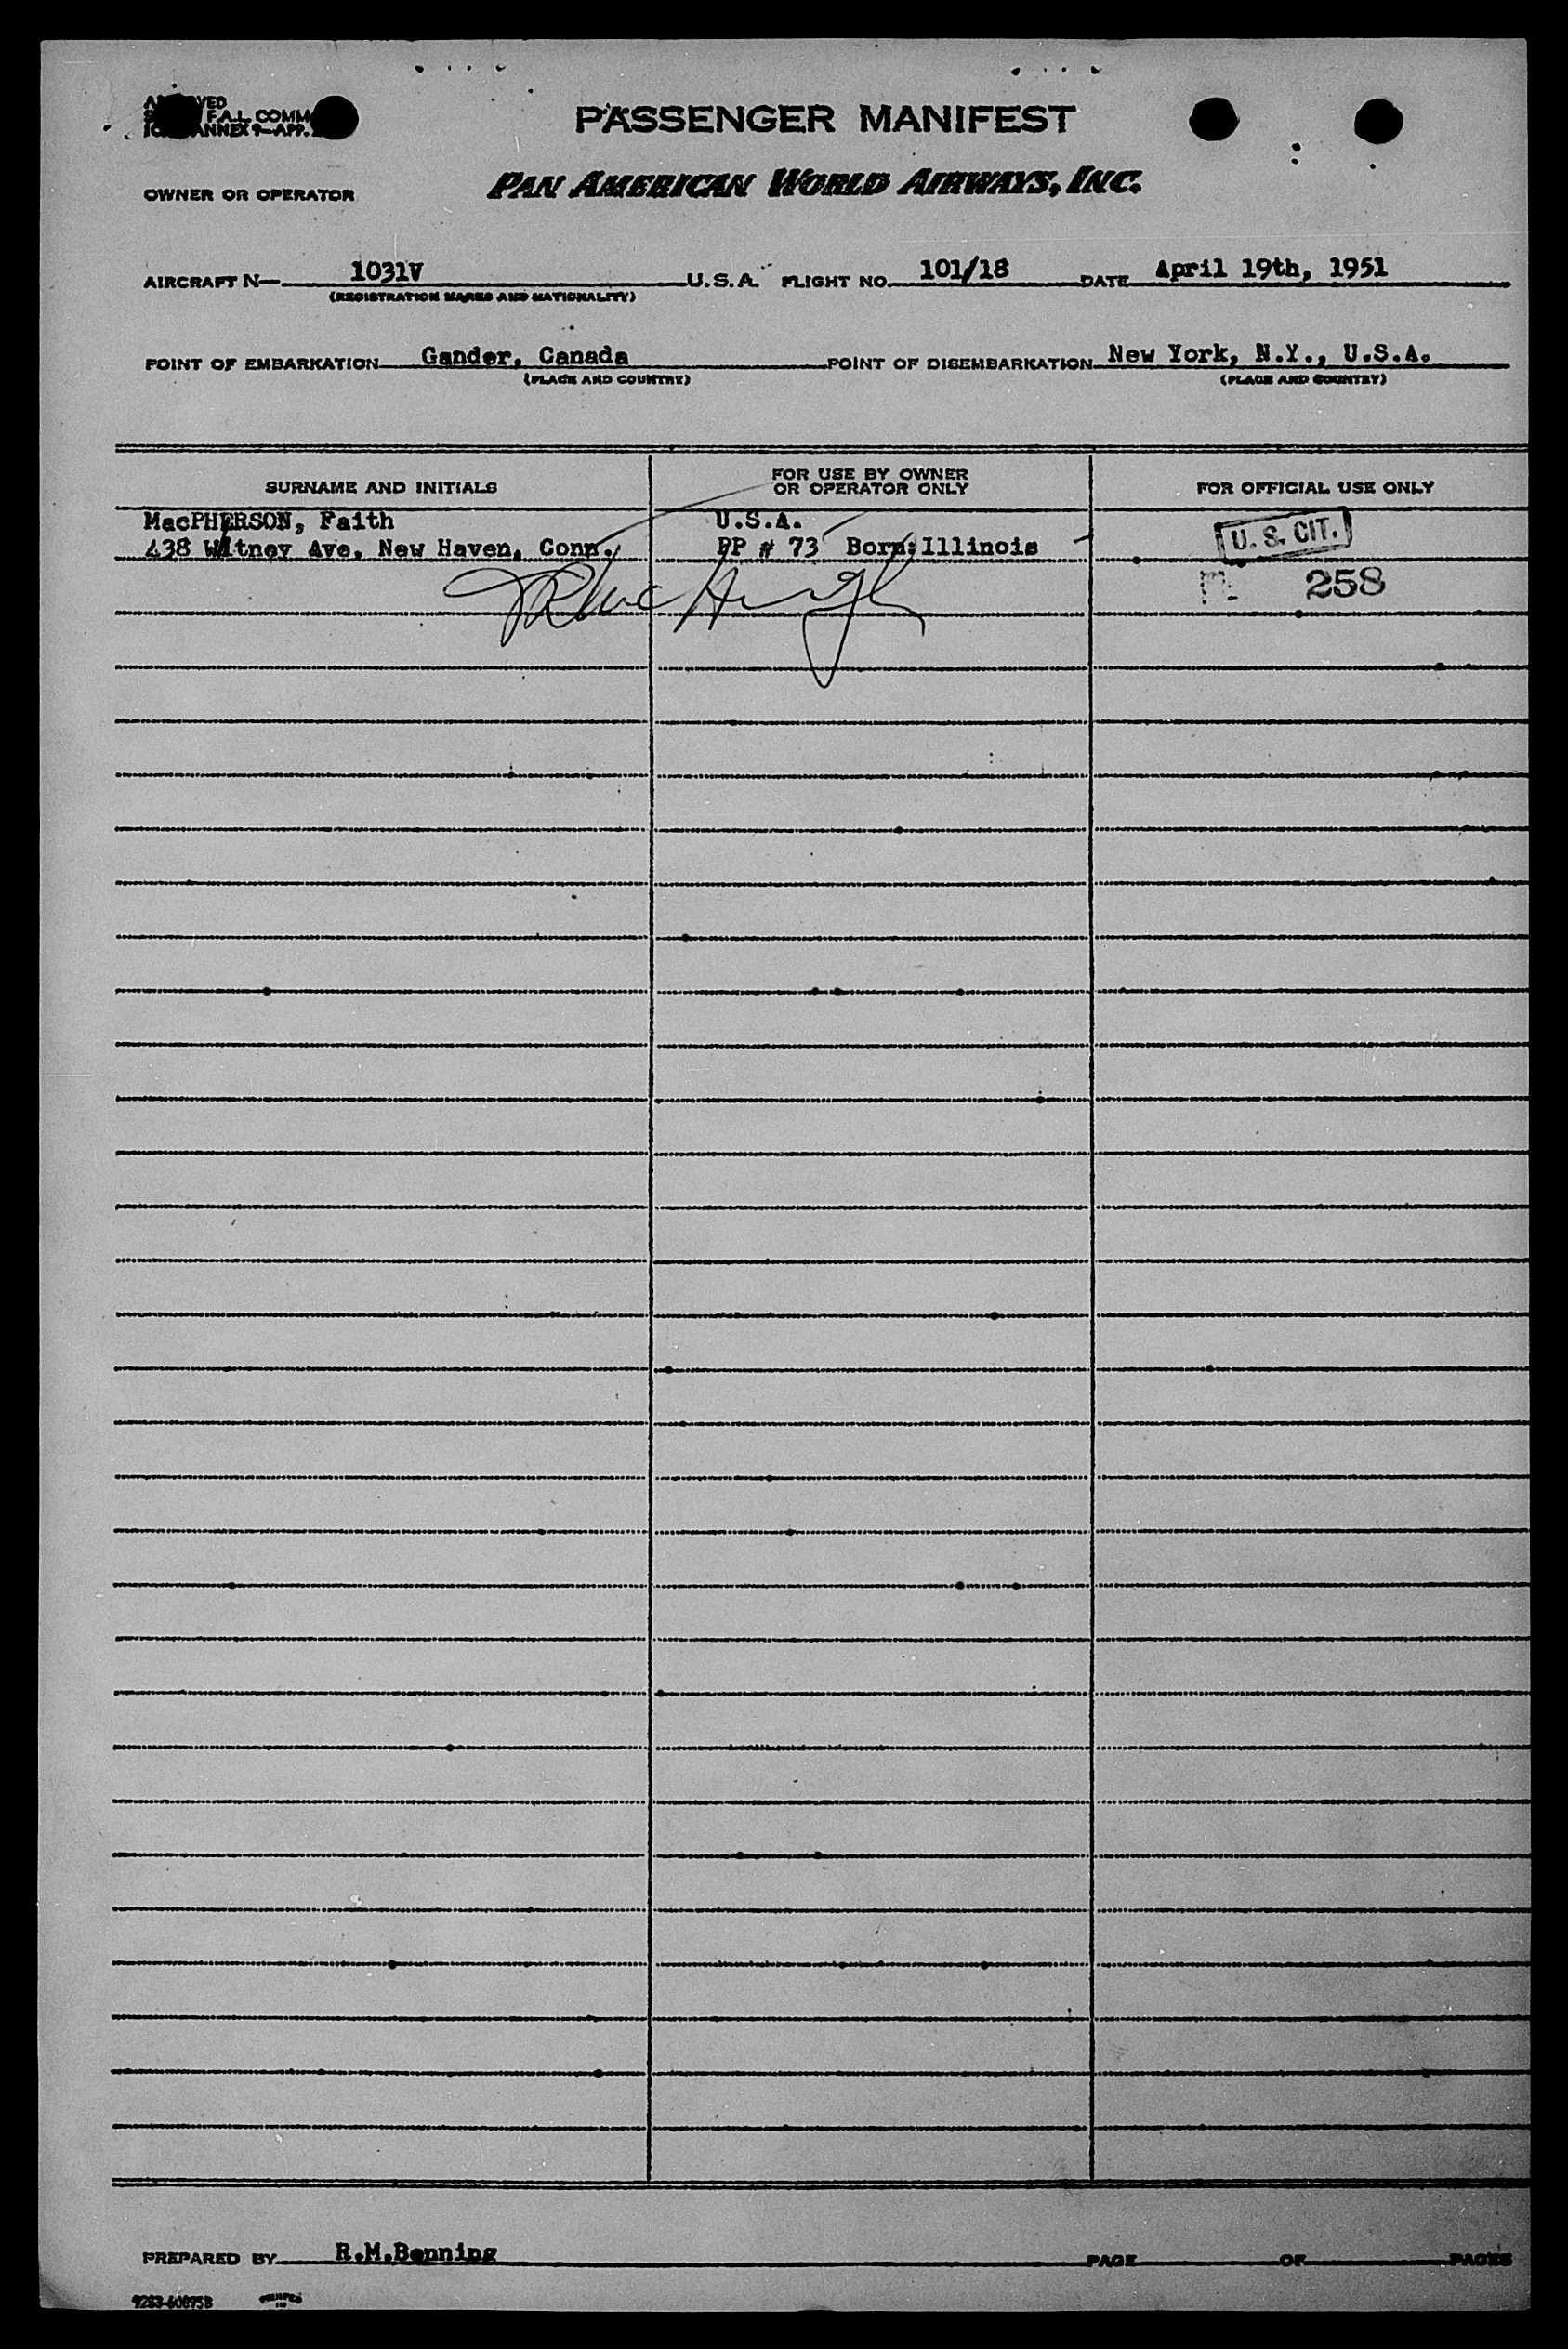 F.A.L. COMM
ANNEX 9—APP.
PASSENGER MANIFEST
OWNER OR OPERATOR PAN AMERICAN WORLD AIRWAYS, INC.
AIRCRAFT N— 1031V U.S.A. FLIGHT NO. 101/18 DATE April 19th, 1951
(REGISTRATION MARKS AND NATIONALITY)
POINT OF EMBARKATION Gander, Canada POINT OF DISEMBARKATION New York, N.Y., U.S.A.
(PLACE AND COUNTRY) (PLACE AND COUNTRY)
SURNAME AND INITIALS FOR USE BY OWNER OR OPERATOR ONLY FOR OFFICIAL USE ONLY
MacPHERSON, Faith U.S.A.
438 Witney Ave. New Haven, Conn. PP # 73 Born: Illinois U. S. CIT.
258
PREPARED BY R.M.Benning PAGE OF PAGES
9283-60895B